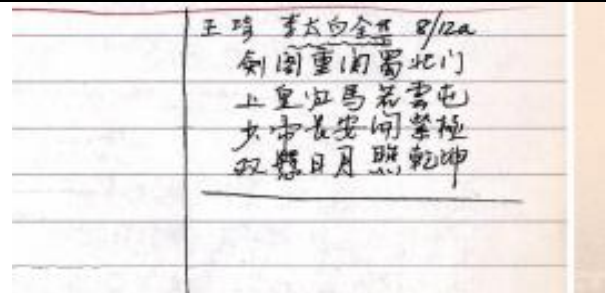 王琦 李太白全集 8/12a
剣阁重関蜀北门
上皇归馬若雲屯
少帝長安開紫極
双懸日月照乾坤